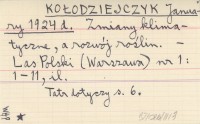 KOŁODZIEJCZYK Janua-
ry 1924 d. Zmiany klima-
tyczne, a rozwój roślin. -
Las Polski (Warszawa) nr 1:
1-11, il.
Tatr dotyczy s. 6.